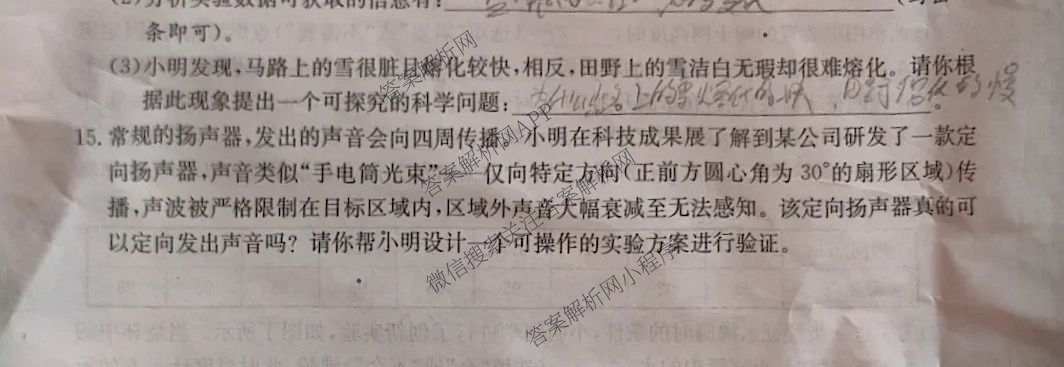 (2)分析实验数据可获取的信息有:
条即可)。
(3)小明发现,马路上的雪很脏且熔化较快,相反,田野上的雪洁白无瑕却很难熔化。请你根
据此现象提出一个可探究的科学问题:
15.常规的扬声器,发出的声音会向四周传播。小明在科技成果展了解到某公司研发了一款定
向扬声器,声音类似“手电筒光束”——仅向特定方向(正前方圆心角为30°的扇形区域)传
播,声波被严格限制在目标区域内,区域外声音大幅衰减至无法感知。该定向扬声器真的可
以定向发出声音吗?请你帮小明设计一个可操作的实验方案进行验证。
答案解析网APP
微信搜索关注:答案解析网
答案解析网小程序